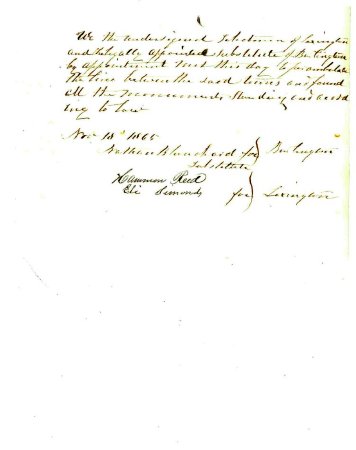 We the undersigned Selectmen of Lexington
and Legally appointed Substitute of Burlington
by appointment met this day to perambulate
the line between the said towns and found
all the monuments standing and accord
ing to law
Nov 13 1865
Nathan Blanchard for } Burlington
Substitute
Hammon Reed
Eli Simonds } for } Lexington